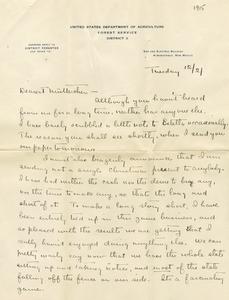 1915
UNITED STATES DEPARTMENT OF AGRICULTURE
FOREST SERVICE
DISTRICT 3
ADDRESS REPLY TO
DISTRICT FORESTER
AND REFER TO
GAS AND ELECTRIC BUILDING
ALBUQUERQUE, NEW MEXICO
Tuesday 12/21
Dearest Mutterchen:-
Although you haven't heard
from me for a long time, neither has anyone else.
I have barely scribbled a bitte note to Estella occasionally.
The reason you shall see shortly, when I send you
our paper tomorrow.
I must also tragically announce that I am
sending not a single Christmas present to anybody.
I have had neither the cash nor the time to buy any,
nor the time to make any, so that's the long and
short of it. To make a long story short, I have
been entirely tied up in this game business, and
so pleased with the results we are getting that I
really haven't enjoyed doing anything else. We can
pretty nearly say now that we have the whole state
sitting up and taking notice, and most of the state
falling off the fence on our side. It's a fascinating
game.